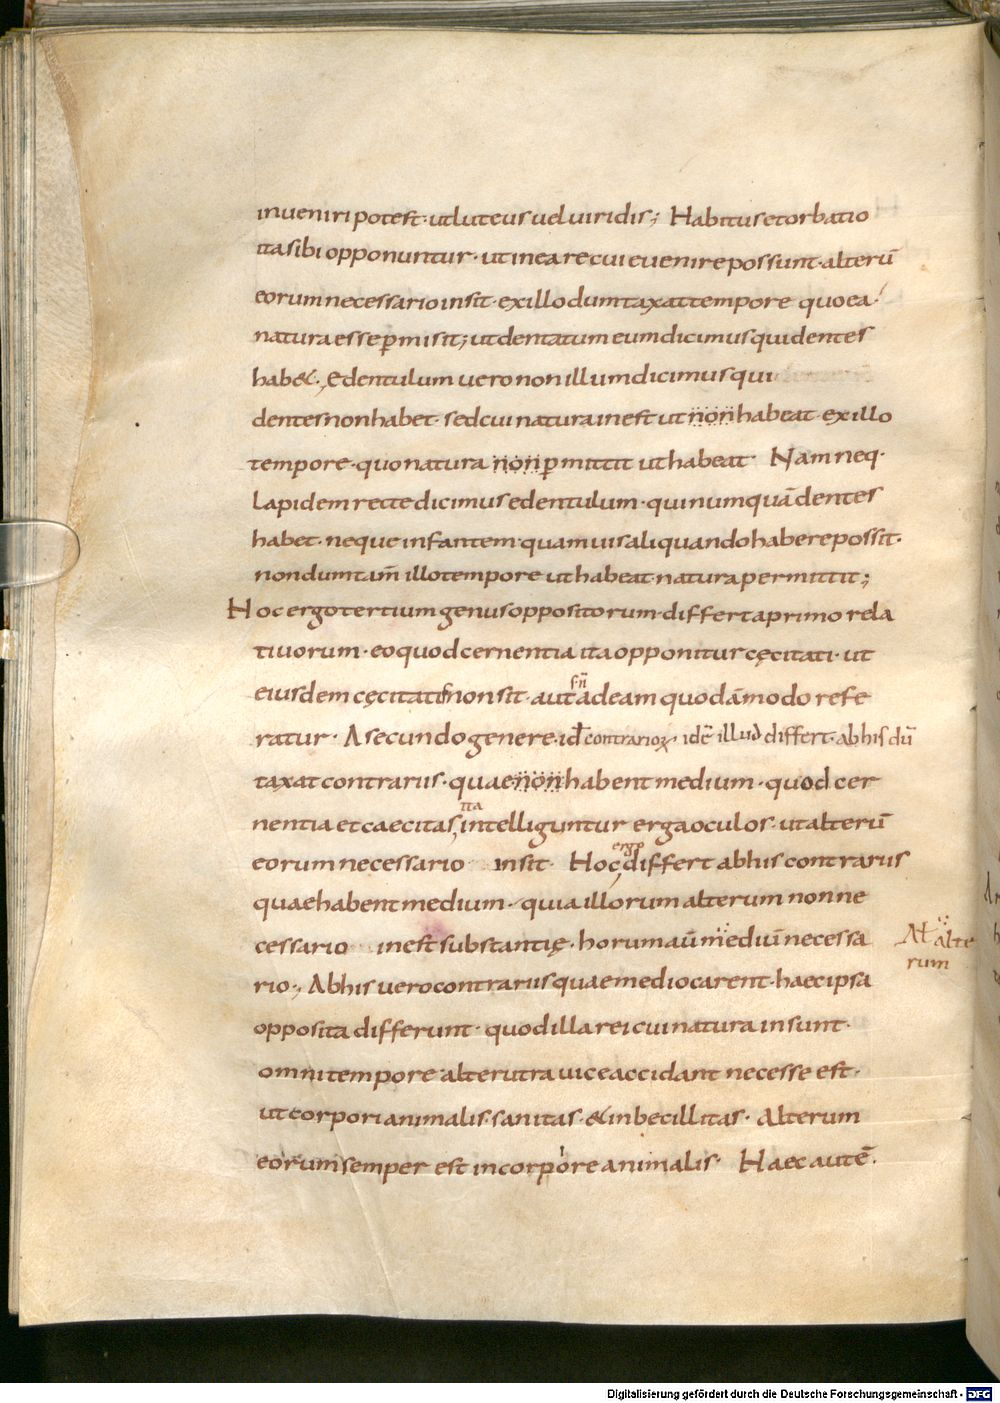 inueniri potest· ut luteus uel uiridis; Habitus et orbatio
ita sibi opponuntur· ut in ea re cui euenire possunt· alterū
eorum necessario insit· ex illo dumtaxat tempore quo ea
natura esse p̄misit; ut dentatum eum dicimus qui dentes
hab&·, Edentulum uero non illum dicimus qui
dentes non habet· sed cui natura inest ut non habeat ex illo
tempore· quo natura non p̄mittit ut habeat· Nam neq·
lapidem recte dicimus edentulum· qui numquā dentes
habet· neque infantem· quamuis aliquando habere possit·
nondum tam̄ illo tempore ut habeat· natura permittit;
Hoc ergo tertium genus oppositorum· differt a primo rela
tiuorum· eo quod cernentia ita opponitur cęcitati· ut
eiusdem cęcitatis non sit· aut s·n̄ ad eam quodāmodo refe
ratur· A secundo genere· id̄ contrarioꝝ· idē illud differt· ab his dū
taxat contrariis· quae non habent medium· quod cer
nentia et caecitas, ita intelliguntur erga oculos· ut alterū
eorum necessario insit· Hoc, ergo differt ab his contrariis
quae habent medium· quia illorum alterum non ne
cessario inest substantię· horum aū mediū necessa
At alte
rum
rio·, Ab his uero contrariis quae medio carent· haec ipsa
opposita differunt· quod illa rei cui natura insunt·
omni tempore alterutra uice accidant necesse est·
ut corpori animalis· sanitas· & inbecillitas· Alterum
eorum semper est in corpore animalis· Haec autē·
Digitalisierung gefördert durch die Deutsche Forschungsgemeinschaft - DFG